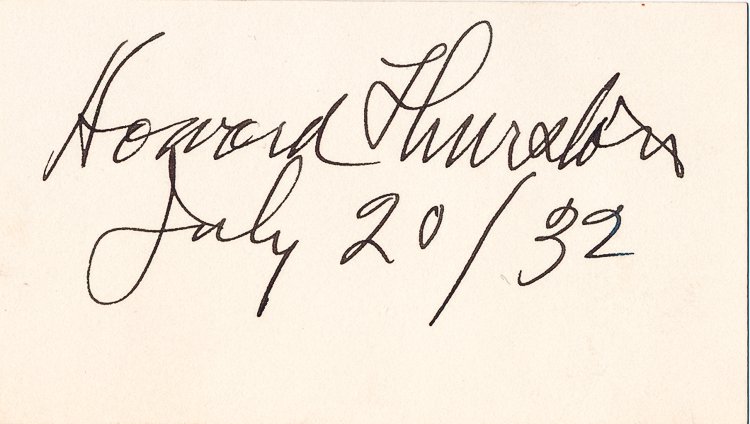 Howard Thurston
July 20/32